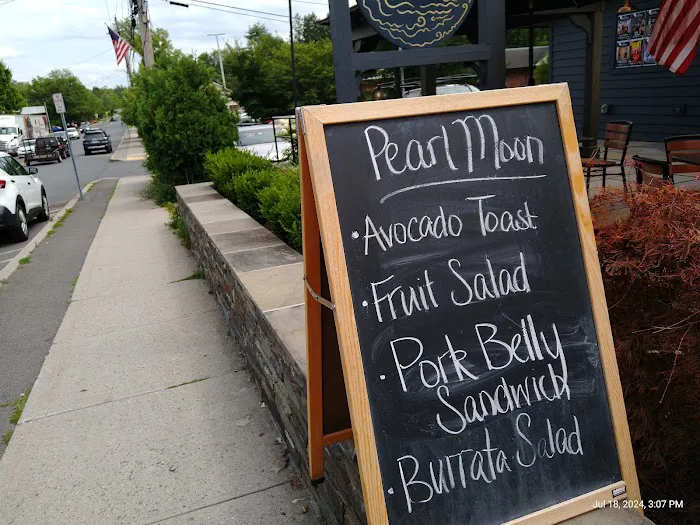 Pearl Moon
• Avocado Toast
• Fruit Salad
• Pork Belly
Sandwich
• Burrata Salad
Jul 18, 2024, 3:07 PM